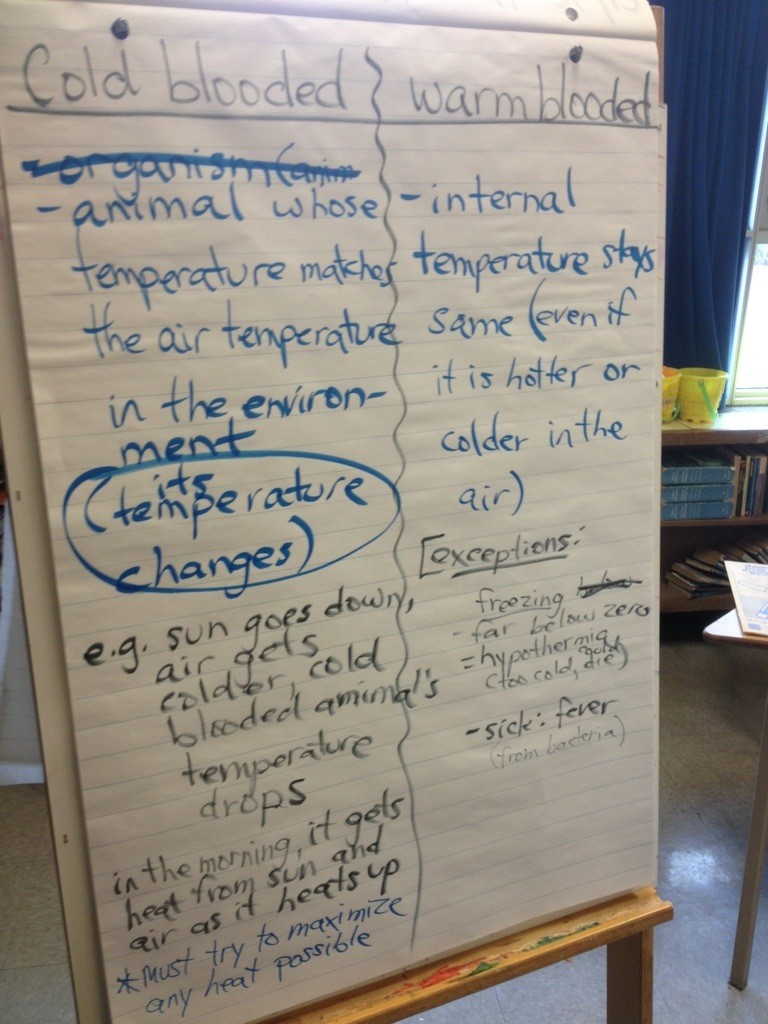 Cold blooded
- organism (anim
- animal whose
temperature matches
the air temperature
in the environ-
ment
(its
temperature
changes)
e.g. sun goes down,
air gets
colder, cold
blooded animal's
temperature
drops
in the morning, it gets
heat from sun and
air as it heats up
*Must try to maximize
any heat possible
warmblooded
- internal
temperature stays
same (even if
it is hotter or
colder in the
air)
[exceptions:
freezing
- far below zero
= hypothermia
(too cold, die)
- sick: fever
(from bacteria)